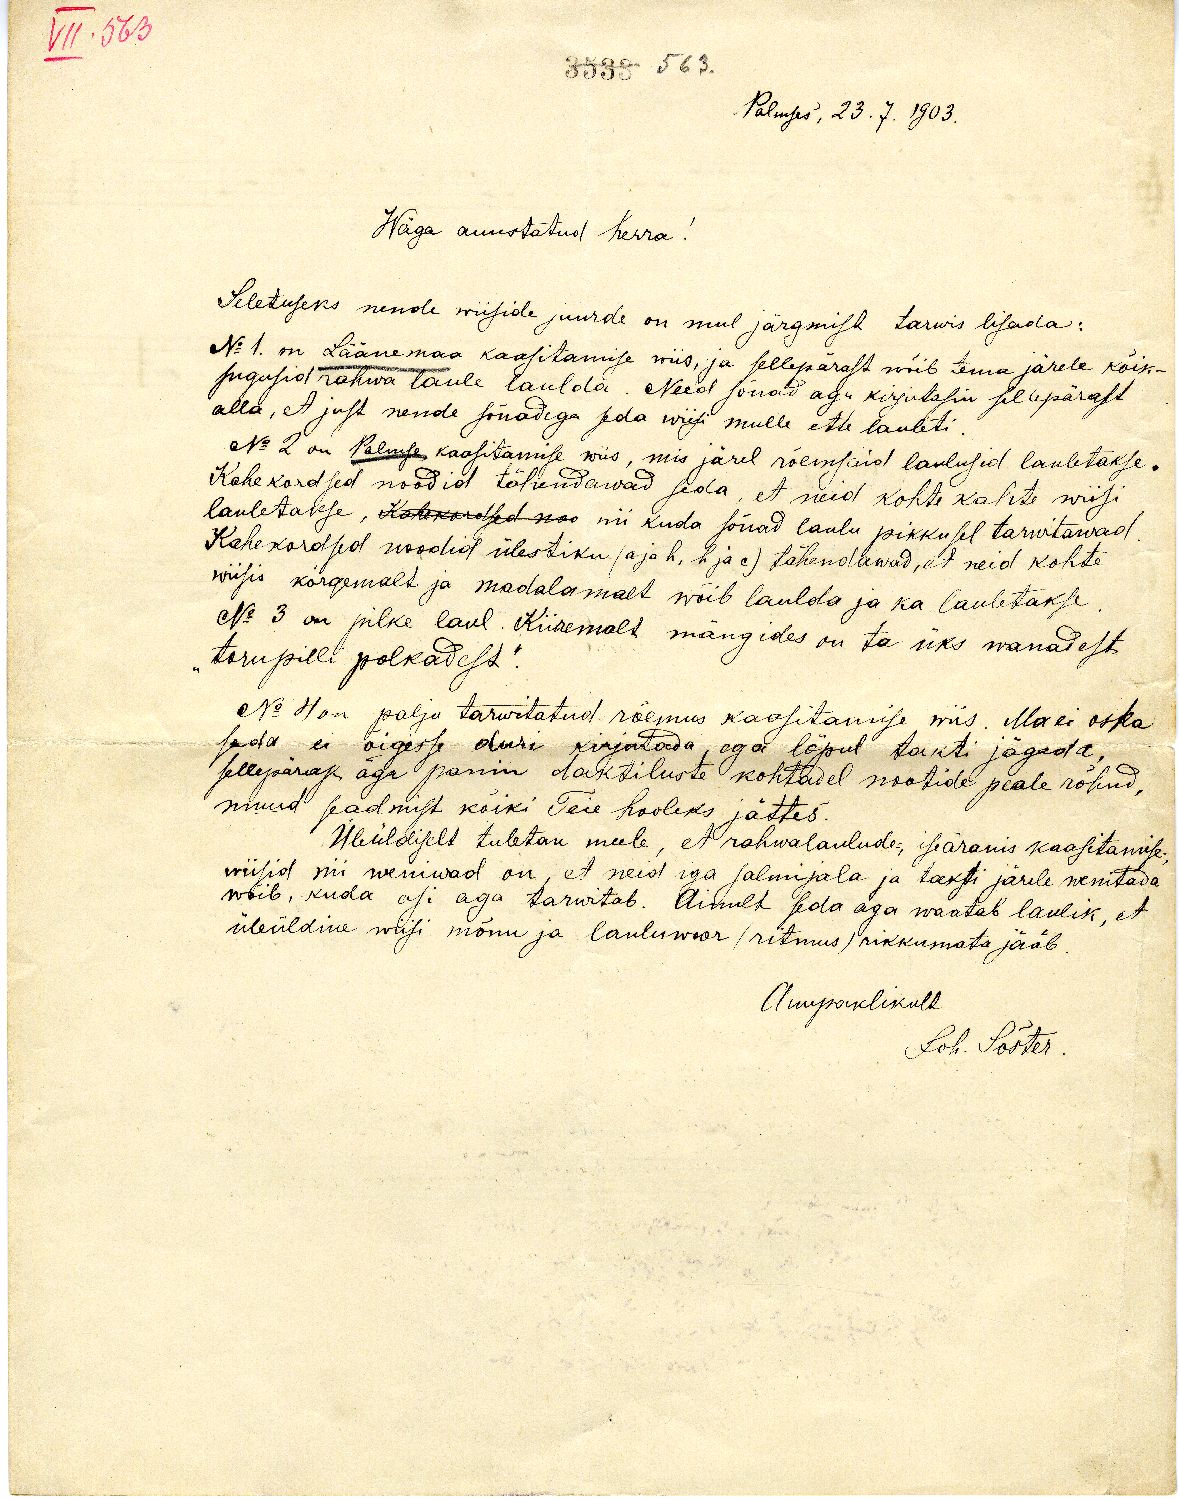 VII. 563
3533 563.
Palmses, 23.7.1903.
Wäga auustatud herra!
Seletuseks nende wiiside juurde on mul järgmist tarwis lisada:
№ 1. on Läänemaa kaasitamise wiis, ja sellepärast wõib tema järele kõik-
sugusid rahwa laule laulda. Need sõnad aga kirjutasin sellepärast
alla, et just nende sõnadega seda wiisi mulle ette lauleti.
№ 2 on Palmse kaasitamise wiis, mis järel rõemsaid laulusid lauletakse.
Kahekordsed noodid tähendawad seda, et neid kohte kahte wiisi
lauletakse, Kahekordsed noo nii kuda sõnad laulu pikkusel tarwitawad.
Kahekordsed noodid ülestiku (a ja h, h ja c) tähendawad, et neid kohte
wiisis kõrgemalt ja madalamalt wõib laulda ja ka lauletakse.
№ 3 on pilke laul. Kiiremalt mängides on ta üks wanadest
„torupilli polkadest".
№ 4 on palju tarwitatud rõemus kaasitamise wiis. Ma ei oska
seda ei õigesse duri kirjutada, ega lõpul takti jägada,
sellepärast aga panin daktiluste kohtadel nootide peale rõhud,
muud seadmist kõiki Teie hooleks jättes.
Üleüldiselt tuletan meele, et rahwalaulude-, iseäranis kaasitamise-,
wiisid nii weniwad on, et neid iga salmijala ja taksti järele wenitada
wõib, kuda asi aga tarwitab. Ainult seda aga waatab laulik, et
üleüldine wiisi mõnu ja lauluwoor (ritmus) rikkumata jääb.
Auupaklikult
Joh. Sõster.